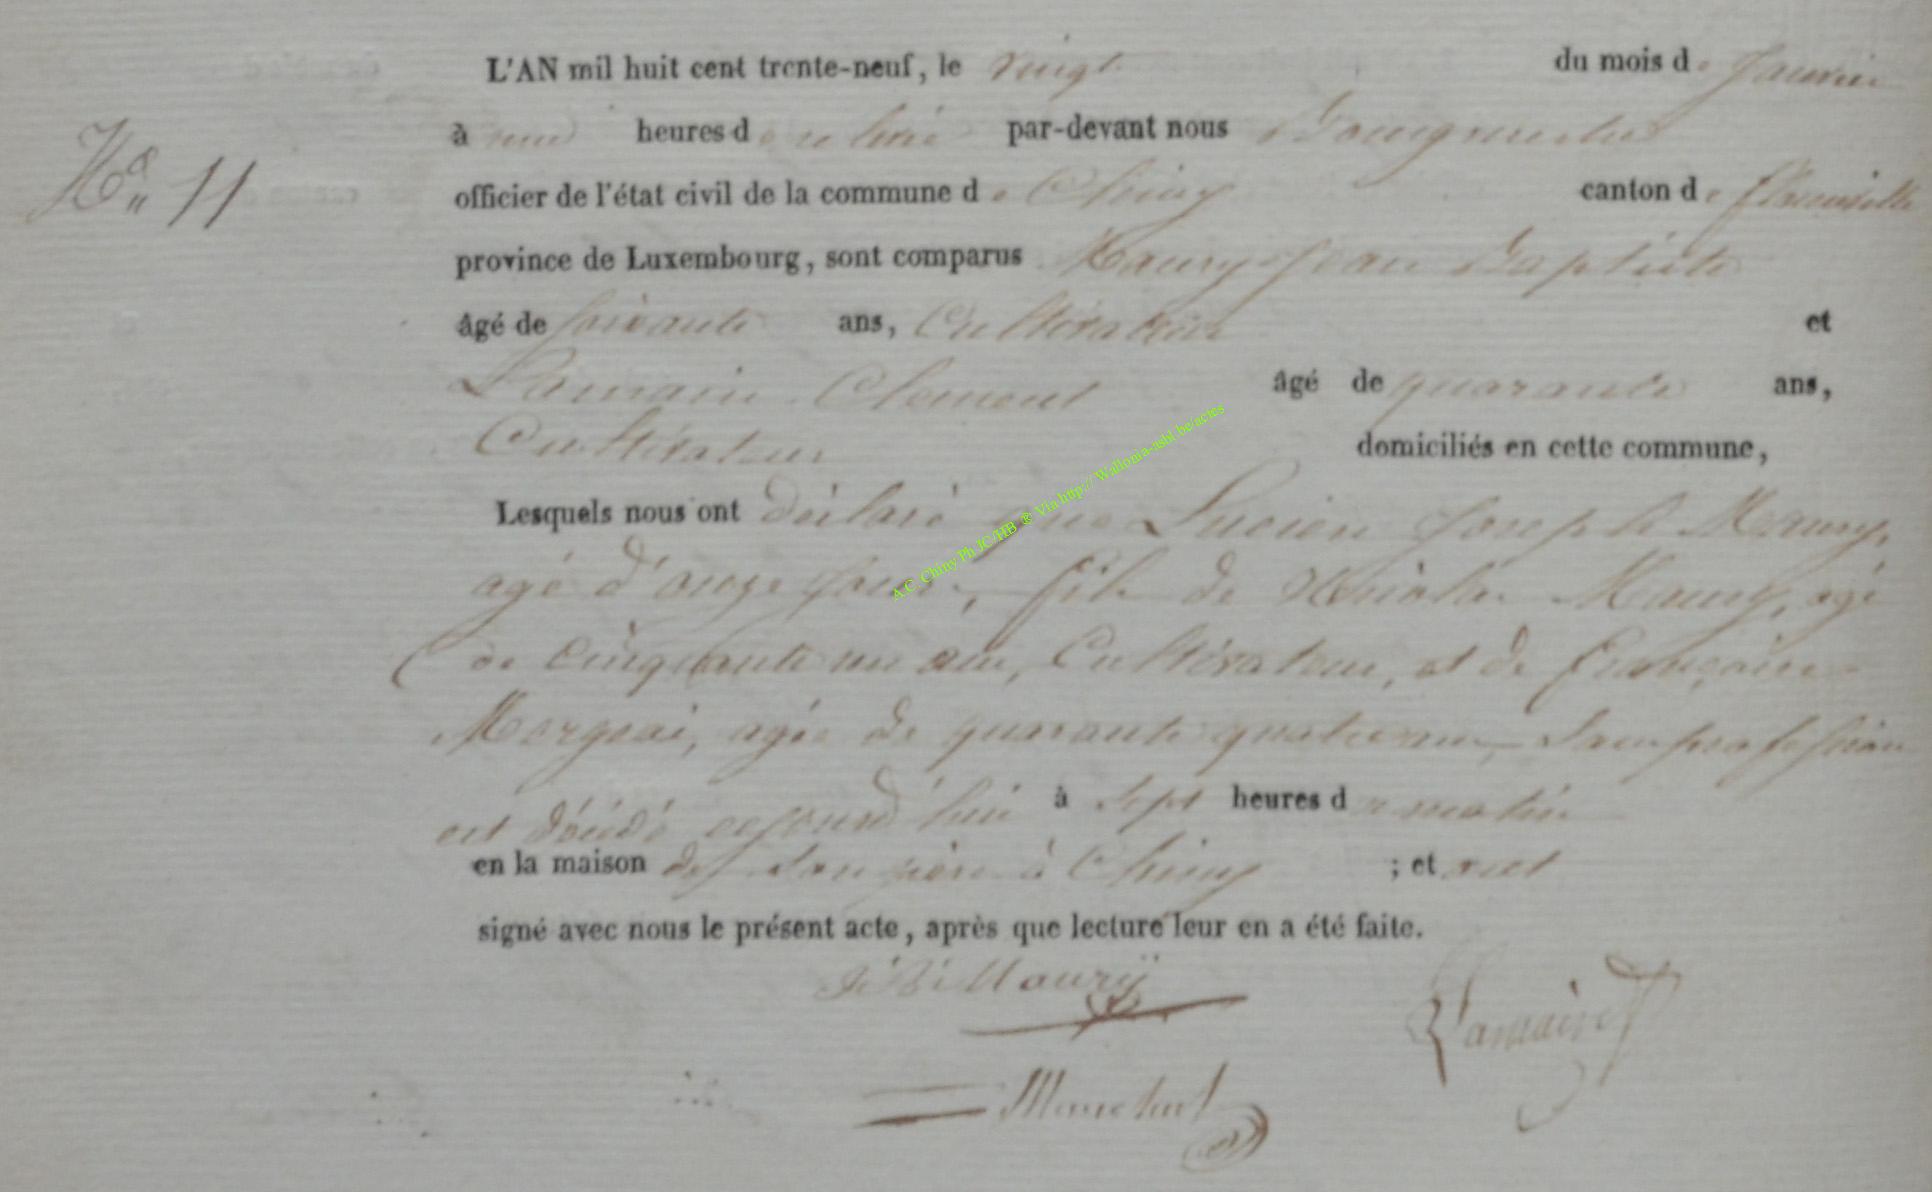 L'AN mil huit cent trente-neuf, le vingt du mois de Janvier
à neuf heures d par-devant nous Bourguemestre
N° 11
officier de l'état civil de la commune de Chiny canton de florenville
province de Luxembourg, sont comparus Maury Jean Baptiste
âgé de soixante ans, Cultivateur et
Lamain Clement âgé de quarante ans,
Cultivateur domiciliés en cette commune,
Lesquels nous ont déclaré que Lucien Joseph Maury,
agé d'onze jours, fils de Nicolas Maury, agé
de cinquante un ans, Cultivateur, et de françoise
agée de quarante quatre ans, sans profession
est décédé cejourd'hui à sept heures du matin
en la maison de son père à Chiny ; et ont
signé avec nous le présent acte, après que lecture leur en a été faite.
J:B: Maurÿ
A.C. Chiny Ph JC/HB ® Via http:// Wallonia-asbl.be/actes